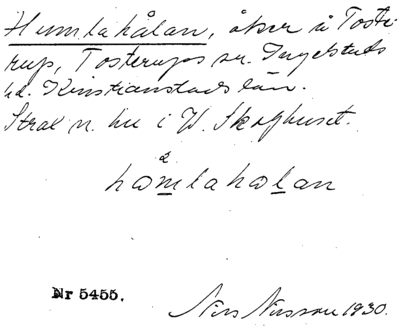 Humlahålan, åker i Toste-
rup, Tosterups sn. Ingelstads
hd. Kristianstads län.
Strax n. hu i V. Skoghuset.
hòmlahɷlan
Nr 5455.
Nils Nilsson 1930.